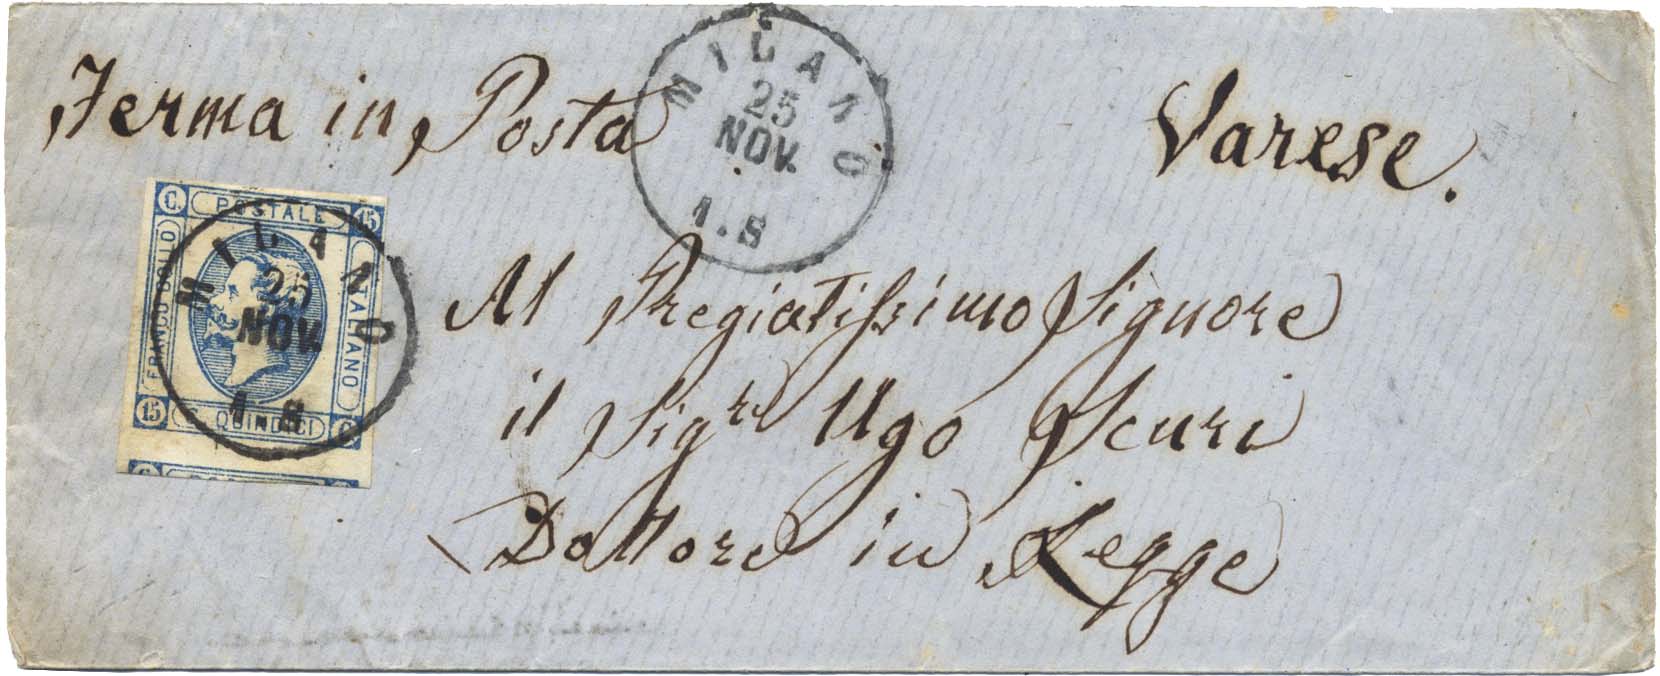 Ferma in Posta
Varese.
MILANO
25
NOV.
1.S
C. POSTALE 15
FRANCO BOLLO
ITALIANO
15 C. QUINDICI C.
MILANO
25
NOV.
Al Pregiatissimo Signore
il Sigre Ugo Scuri
Dottore in Legge